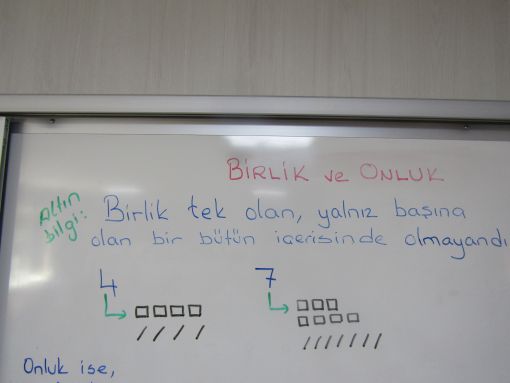 BİRLİK ve ONLUK
Altın bilgi: Birlik tek olan, yalnız başına
olan bir bütün içerisinde olmayandı
4 7
Onluk ise,